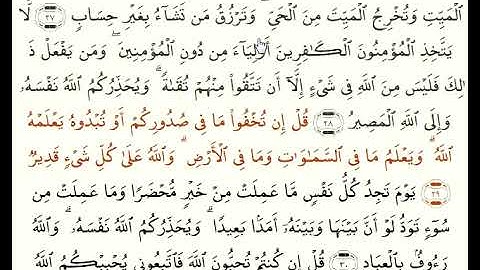 الْمَيِّتِ وَتُخْرِجُ الْمَيِّتَ مِنَ الْحَيِّ ۖ وَتَرْزُقُ مَن تَشَاءُ بِغَيْرِ حِسَابٍ ﴿٢٧﴾ لَّا
يَتَّخِذِ الْمُؤْمِنُونَ الْكَافِرِينَ أَوْلِيَاءَ مِن دُونِ الْمُؤْمِنِينَ ۖ وَمَن يَفْعَلْ ذَ
ٰلِكَ فَلَيْسَ مِنَ اللَّهِ فِي شَيْءٍ إِلَّا أَن تَتَّقُوا مِنْهُمْ تُقَاةً ۗ وَيُحَذِّرُكُمُ اللَّهُ نَفْسَهُ ۗ
وَإِلَى اللَّهِ الْمَصِيرُ ﴿٢٨﴾ قُلْ إِن تُخْفُوا مَا فِي صُدُورِكُمْ أَوْ تُبْدُوهُ يَعْلَمْهُ
اللَّهُ ۗ وَيَعْلَمُ مَا فِي السَّمَاوَاتِ وَمَا فِي الْأَرْضِ ۗ وَاللَّهُ عَلَىٰ كُلِّ شَيْءٍ قَدِيرٌ
﴿٢٩﴾ يَوْمَ تَجِدُ كُلُّ نَفْسٍ مَّا عَمِلَتْ مِنْ خَيْرٍ مُّحْضَرًا وَمَا عَمِلَتْ مِن
سُوءٍ تَوَدُّ لَوْ أَنَّ بَيْنَهَا وَبَيْنَهُ أَمَدًا بَعِيدًا ۗ وَيُحَذِّرُكُمُ اللَّهُ نَفْسَهُ ۗ وَاللَّهُ
رَءُوفٌ بِالْعِبَادِ ﴿٣٠﴾ قُلْ إِن كُنتُمْ تُحِبُّونَ اللَّهَ فَاتَّبِعُونِي يُحْبِبْكُمُ اللَّهُ